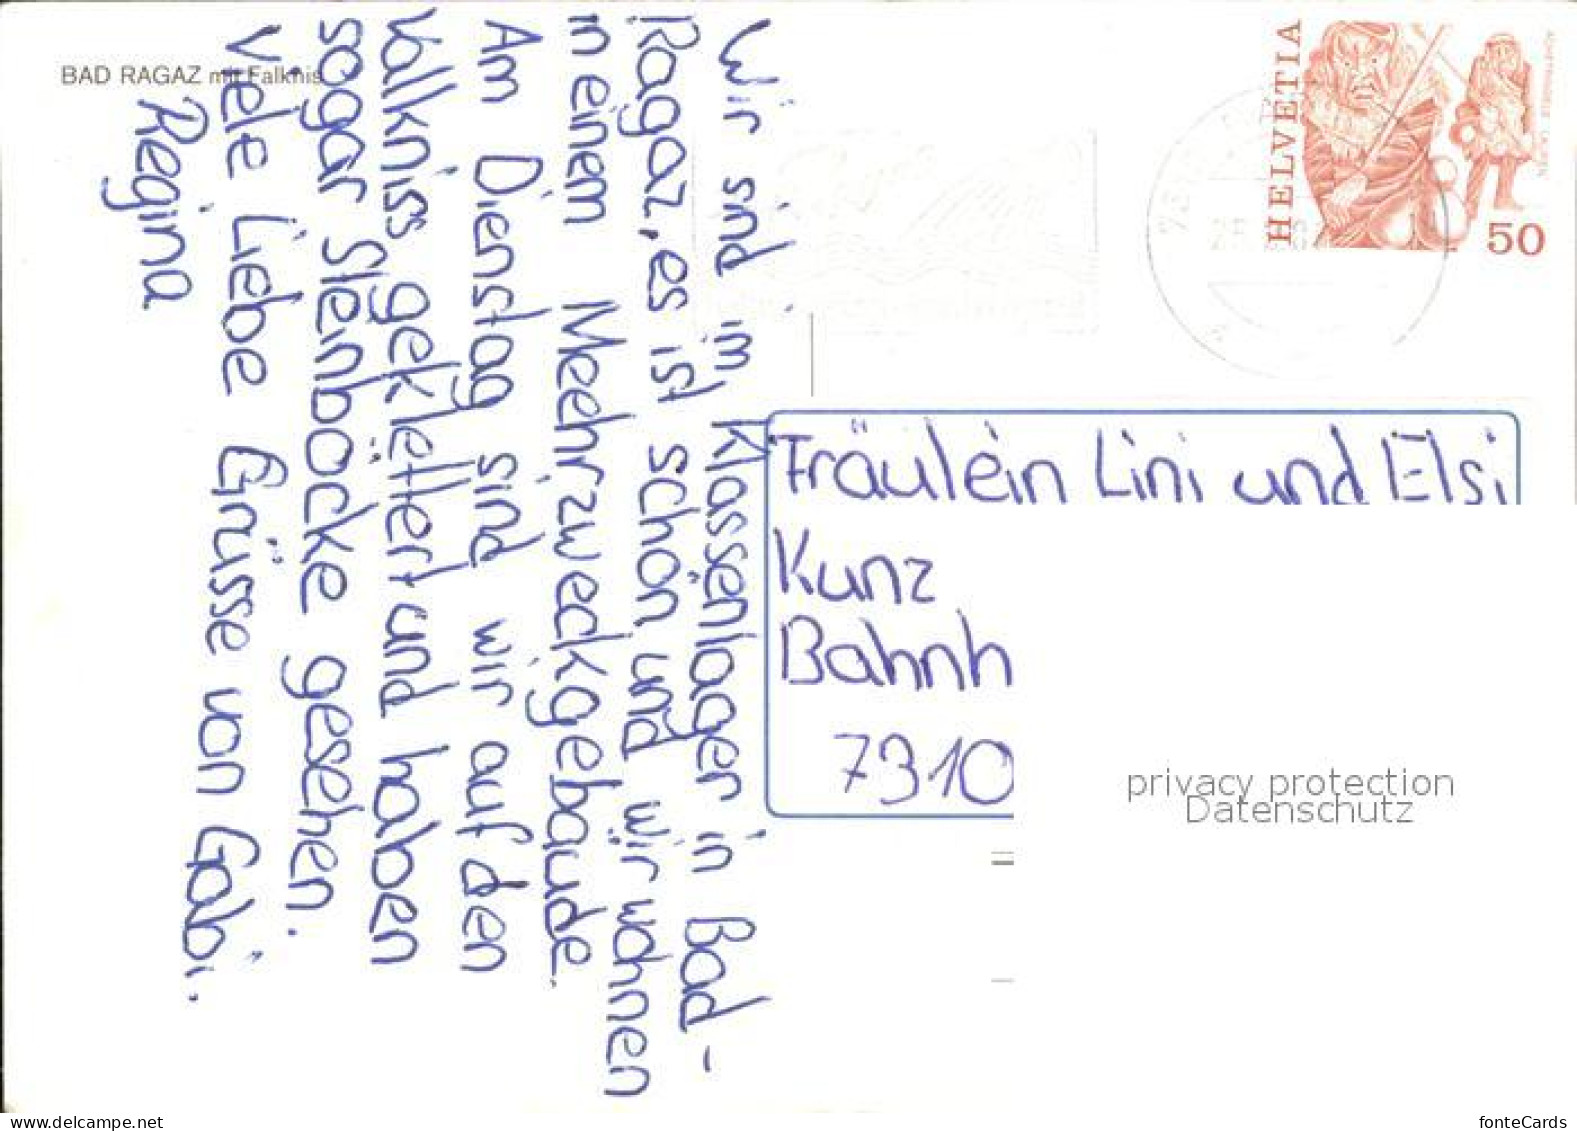 BAD RAGAZ mit Falknis
Wir sind im Klassenlager in Bad-
Ragaz, es ist schön und wir wohnen
in einem Meehrzweckgebäude.
Am Dienstag sind wir auf den
Valkniss geklettert und haben
sogar Steinböcke gesehen.
Viele Liebe Grüsse von Gabi.
Regina
HELVETIA
50
Fräulein Lini und Elsi
Kunz
Bahnh
7310
privacy protection
Datenschutz
delcampe.net
fonteCards